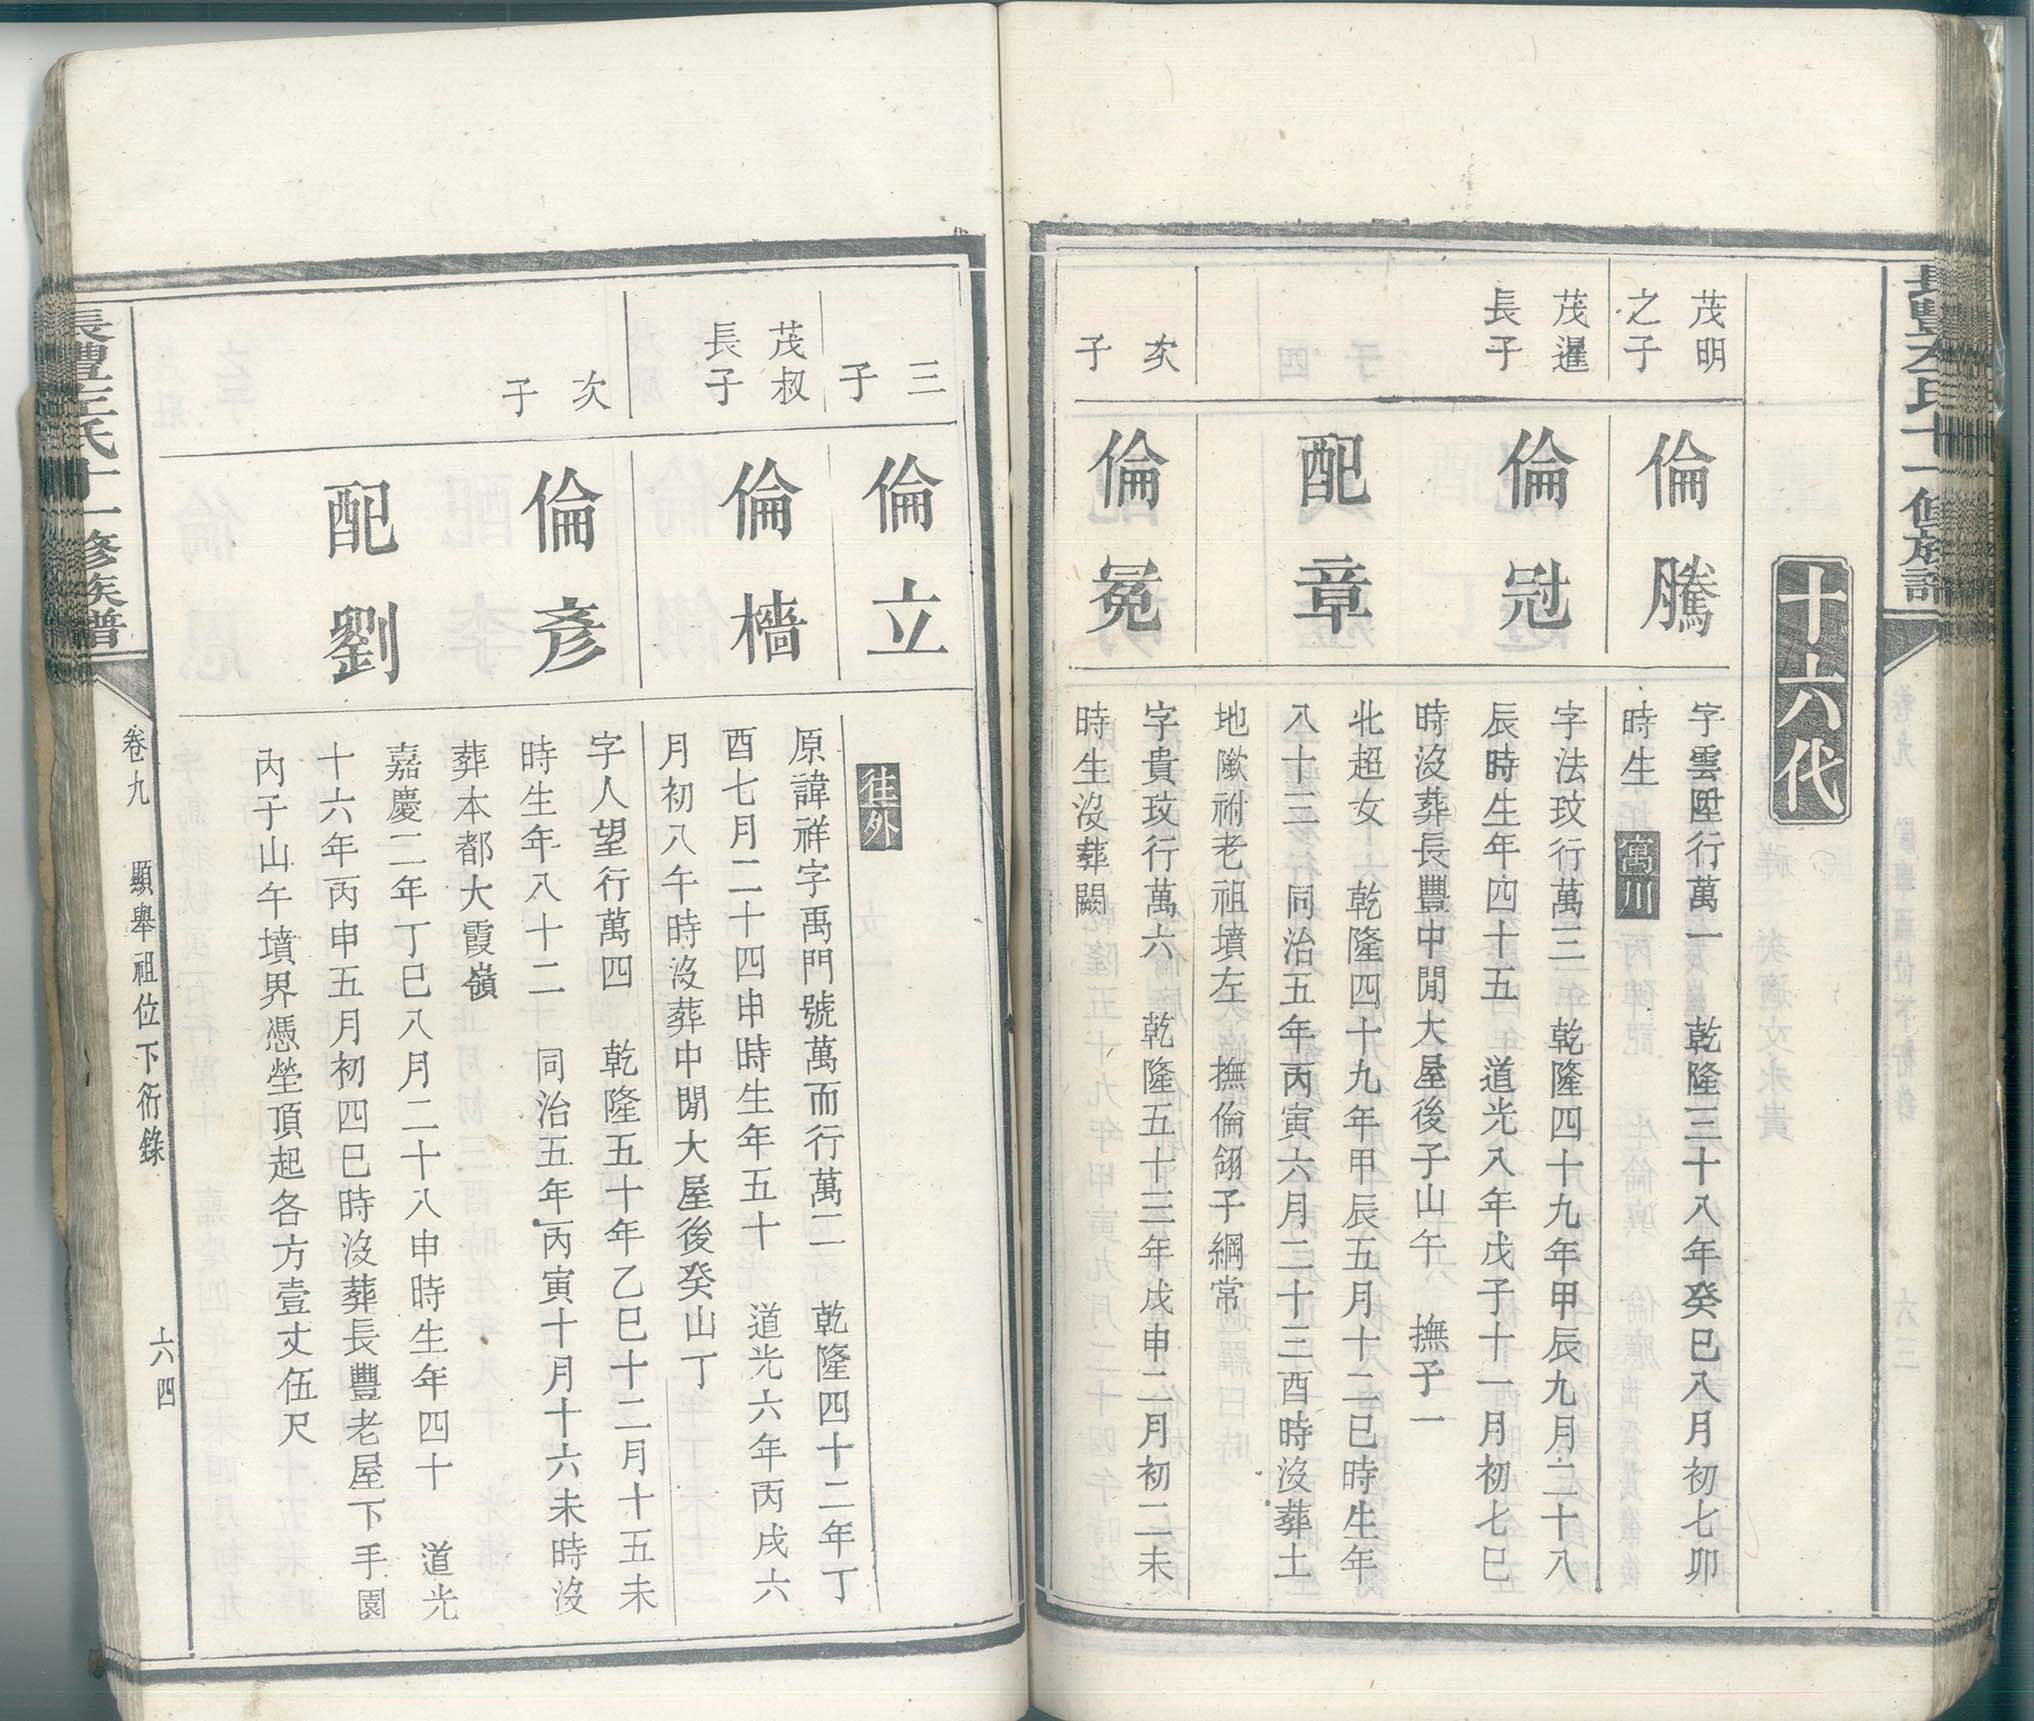 十六代
茂明
之子
倫騰
字雲陞行萬一　乾隆三十八年癸巳八月初七卯
時生　寓川
茂暹
長子
倫冠
字法玟行萬三　乾隆四十九年甲辰九月二十八
辰時生年四十五　道光八年戊子十一月初七巳
時沒葬長豐中閒大屋後子山午　撫子一
配章
北超女　乾隆四十九年甲辰五月十二巳時生年
八十三　同治五年丙寅六月二十三酉時沒葬土
地墩祔老祖墳左　撫倫翎子綱常
次
子
倫冕
字貴玟行萬六　乾隆五十三年戊申二月初二未
時生沒葬闕
三
子
倫立
往外
茂叔
長子
倫檣
原諱祥字禹門號萬而行萬二　乾隆四十二年丁
酉七月二十四申時生年五十　道光六年丙戌六
月初八午時沒葬中閒大屋後癸山丁
次
子
倫彥
字人望行萬四　乾隆五十年乙巳十二月十五未
時生年八十二　同治五年丙寅十月十六未時沒
葬本都大霞嶺
配劉
嘉慶二年丁巳八月二十八申時生年四十　道光
十六年丙申五月初四巳時沒葬長豐老屋下手園
內子山午墳界憑塋頂起各方壹丈伍尺
十一修族譜
卷九　顯舉祖位下衍錄　六四